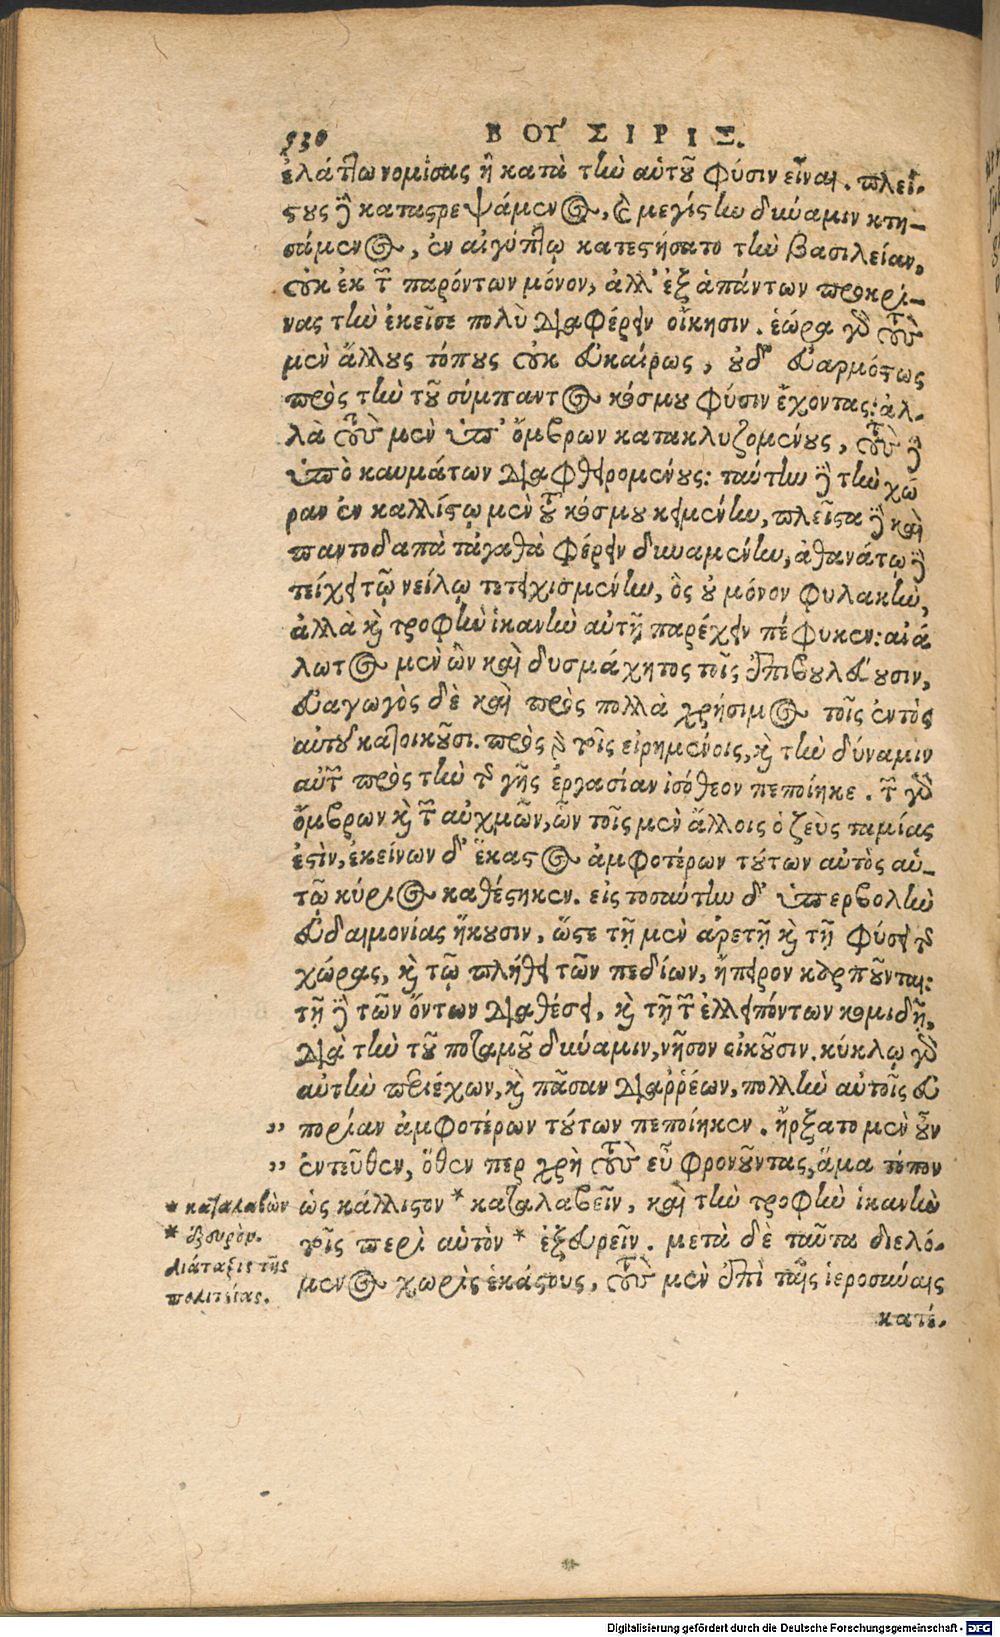 530 ΒΟΥΣΙΡΙΣ.
ἐλάττω νομίσας ἢ κατὰ τὴν αὑτοῦ φύσιν εἶναι. πλεί-
στους δὲ καταστρεψάμενος, καὶ μεγίστην δύναμιν κτη-
σάμενος, ἐν αἰγύπτῳ κατεστήσατο τὴν βασιλείαν,
οὐκ ἐκ τῶν παρόντων μόνον, ἀλλ' ἐξ ἁπάντων προκρί-
νας τὴν ἐκεῖσε πολὺ διαφέρειν οἴκησιν. ἑώρα γὰρ τοὺς
μὲν ἄλλους τόπους οὐκ εὐκαίρως, οὐδ' εὐαρμόστως
πρὸς τὴν τοῦ σύμπαντος κόσμου φύσιν ἔχοντας: ἀλ-
λὰ τοὺς μὲν ὑπ' ὄμβρων κατακλυζομένους, τοὺς δὲ
ὑπὸ καυμάτων διαφθειρομένους: ταύτην δὲ τὴν χώ
ραν ἐν καλλίστῳ μὲν τοῦ κόσμου κειμένην, πλεῖστα δὲ καὶ
παντοδαπὰ τἀγαθὰ φέρειν δυναμένην, ἀθανάτῳ δὲ
τείχει τῷ νείλῳ τετειχισμένην, ὃς οὐ μόνον φυλακὴν,
ἀλλὰ καὶ τροφὴν ἱκανὴν αὐτῇ παρέχειν πέφυκεν: ἀνά
λωτος μὲν ὢν καὶ δυσμάχητος τοῖς ἐπιβουλεύουσιν,
εὐαγωγὸς δὲ καὶ πρὸς πολλὰ χρήσιμος τοῖς ἐντὸς
αὐτοῦ κατοικοῦσι. πρὸς δὲ τοῖς εἰρημένοις, καὶ τὴν δύναμιν
αὐτῶν πρὸς τὴν τῆς γῆς ἐργασίαν ἰσόθεον πεποίηκε. τῶν γὰρ
ὄμβρων καὶ τῶν αὐχμῶν, ὧν τοῖς μὲν ἄλλοις ὁ ζεὺς ταμίας
ἐστὶν, ἐκείνων δ' ἕκαστος ἀμφοτέρων τούτων αὐτὸς αὑ-
τῷ κύριος καθέστηκεν. εἰς τοσαύτην δ' ὑπερβολὴν
εὐδαιμονίας ἥκουσιν, ὥστε τῇ μὲν ἀρετῇ καὶ τῇ φύσει τῆς
χώρας, καὶ τῷ πλήθει τῶν πεδίων, ἤπειρον καρποῦνται:
τῇ δὲ τῶν ὄντων διαθέσει, καὶ τῇ τῶν ἐλλειπόντων κομιδῇ,
διὰ τὴν τοῦ ποταμοῦ δύναμιν, νῆσον οἰκοῦσιν. κύκλῳ γὰρ
αὐτὴν περιέχων, καὶ πᾶσαν διαῤῥέων, πολλὴν αὐτοῖς εὐ
„ πορίαν ἀμφοτέρων τούτων πεποίηκεν. ἤρξατο μὲν οὖν
„ ἐντεῦθεν, ὅθεν περ χρὴ τοὺς εὖ φρονοῦντας, ἅμα τόπον
* καταλαβὼν ὡς κάλλιστον * καταλαβεῖν, καὶ τὴν τροφὴν ἱκανὴν
* ἐξευρὸν. τοῖς περὶ αὑτὸν * ἐξευρεῖν. μετὰ δὲ ταῦτα διελό-
διάταξις τῆς
πολιτείας. μενος χωρὶς ἑκάστους, τοὺς μὲν ἐπὶ ταῖς ἱεροσύναις
κατέ-
Digitalisierung gefördert durch die Deutsche Forschungsgemeinschaft - DFG